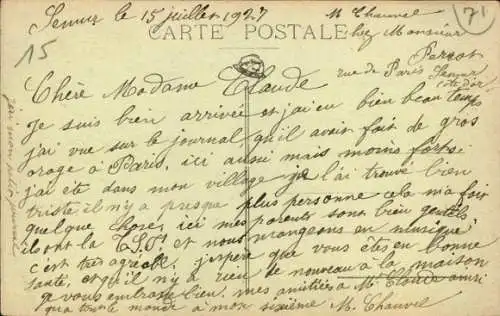 Semur le 15 juillet 1927
M Chauvel
CARTE POSTALE
chez Monsieur
71
Perrot
15
rue de Paris Semur
Côte d'or
Chère Madame Claude
Je suis bien arrivée et j'ai eu bien beau temps
j'ai vu sur le journal qu'il avait fait de gros
orage à Paris, ici aussi mais moins forts.
j'ai été dans mon village je l'ai trouvé bien
triste il n'y a presque plus personne cela m'a fait
quelque chose, ici mes parents sont bien gentils
ils ont la T.S.F. et nous mangeons en musique
c'est très agréable, j'espère que vous êtes en bonne
santé, et qu'il n'y a rien de nouveau à la maison
je vous embrasse bien, mes amitiées à M. Claude ainsi
qu'a toute monde à mon sixième M. Chauvel